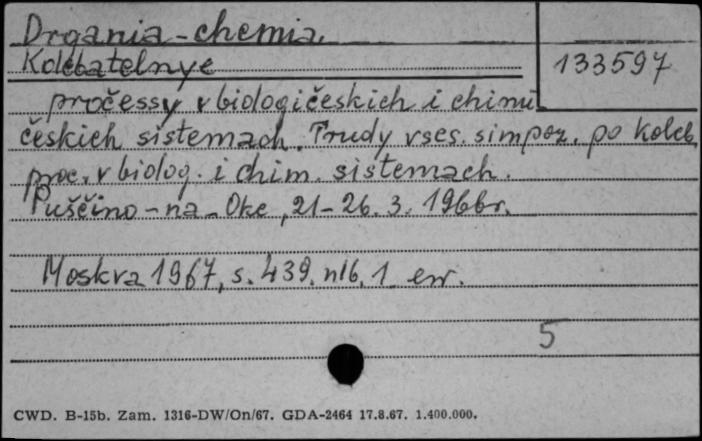 Drgania - chemia.
Kolebatelnye
133597
pročessy v biologičeskich i chimi
českich sistemach. Trudy vses. simpoz. po koleb.
proc. v biolog. i chim. sistemach.
Puščino - na - Oke, 21-26. 3. 1966 r.
Moskva 1967, s. 439. nlb. 1 err.
5
CWD. B-15b. Zam. 1316-DW/On/67. GDA-2464 17.8.67. 1.400.000.